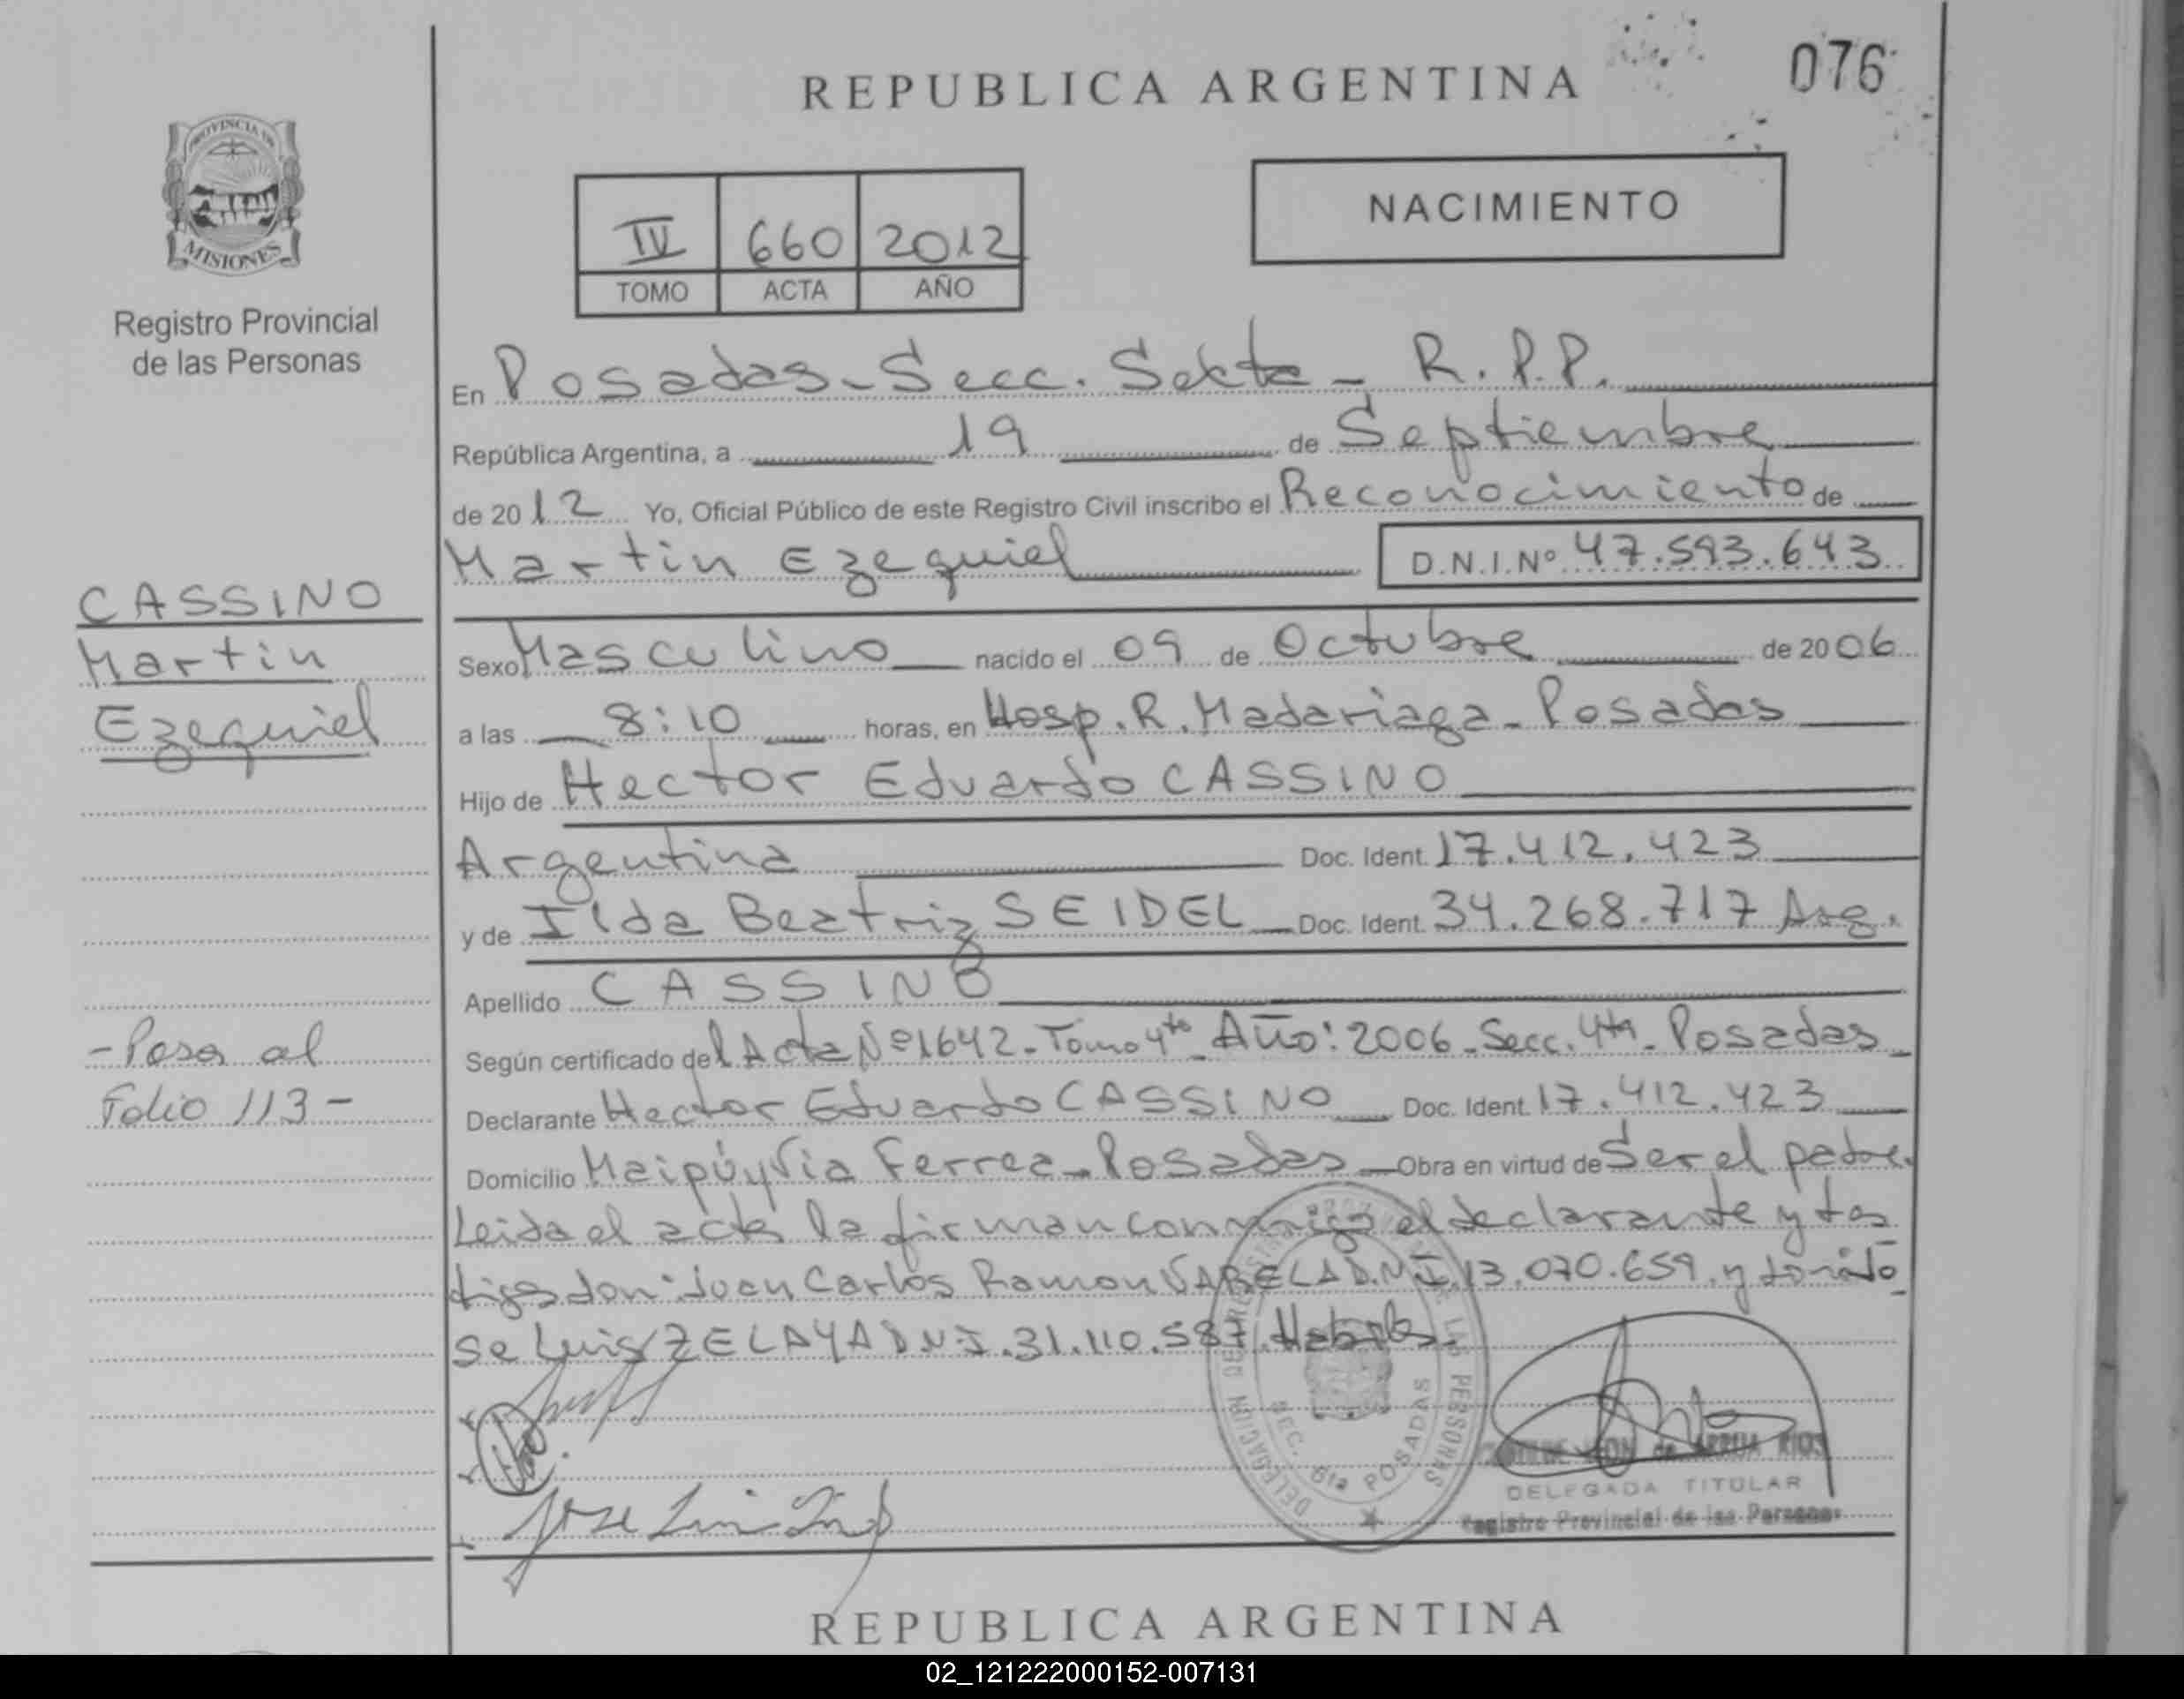 REPUBLICA ARGENTINA
076
PROVINCIA DE
MISIONES
Registro Provincial
de las Personas
IV 660 2012
TOMO ACTA AÑO
NACIMIENTO
En Posadas - Secc. Sexta - R.P.P.
República Argentina, a 19 de Septiembre
de 2012 Yo, Oficial Público de este Registro Civil inscribo el Reconocimiento de
Martin Ezequiel D.N.I.Nº 47.593.643
CASSINO
Martin
Ezequiel
Sexo Masculino nacido el 09 de Octubre de 2006
a las 8:10 horas, en Hosp. R. Madariaga - Posadas
Hijo de Hector Eduardo CASSINO
Argentina Doc. Ident. 17.412.423
y de Ilda Beatriz SEIDEL Doc. Ident. 34.268.717 Arg.
Apellido CASSINO
- Pasa al
Folio 113 -
Según certificado del Acta Nº 1642 - Tomo 4to - Año: 2006 - Secc. 4ta - Posadas
Declarante Hector Eduardo CASSINO Doc. Ident. 17.412.423
Domicilio Maipú y Via Ferrea - Posadas Obra en virtud de Ser el padre.
Leida el acta la firman conmigo el declarante y tes
tigos don: Juan Carlos Ramon VARELA D.N.I. 13.070.659. y don: Jo
se Luis ZELAYA D.N.I. 31.110.587. Habiles.
DELEGACION DEL REGISTRO PROVINCIAL DE LAS PERSONAS
SEC. 6ta POSADAS
CLOTILDE LEON de ARRUA RIOS
DELEGADA TITULAR
Registro Provincial de las Personas
Jose Luis
REPUBLICA ARGENTINA
02_121222000152-007131